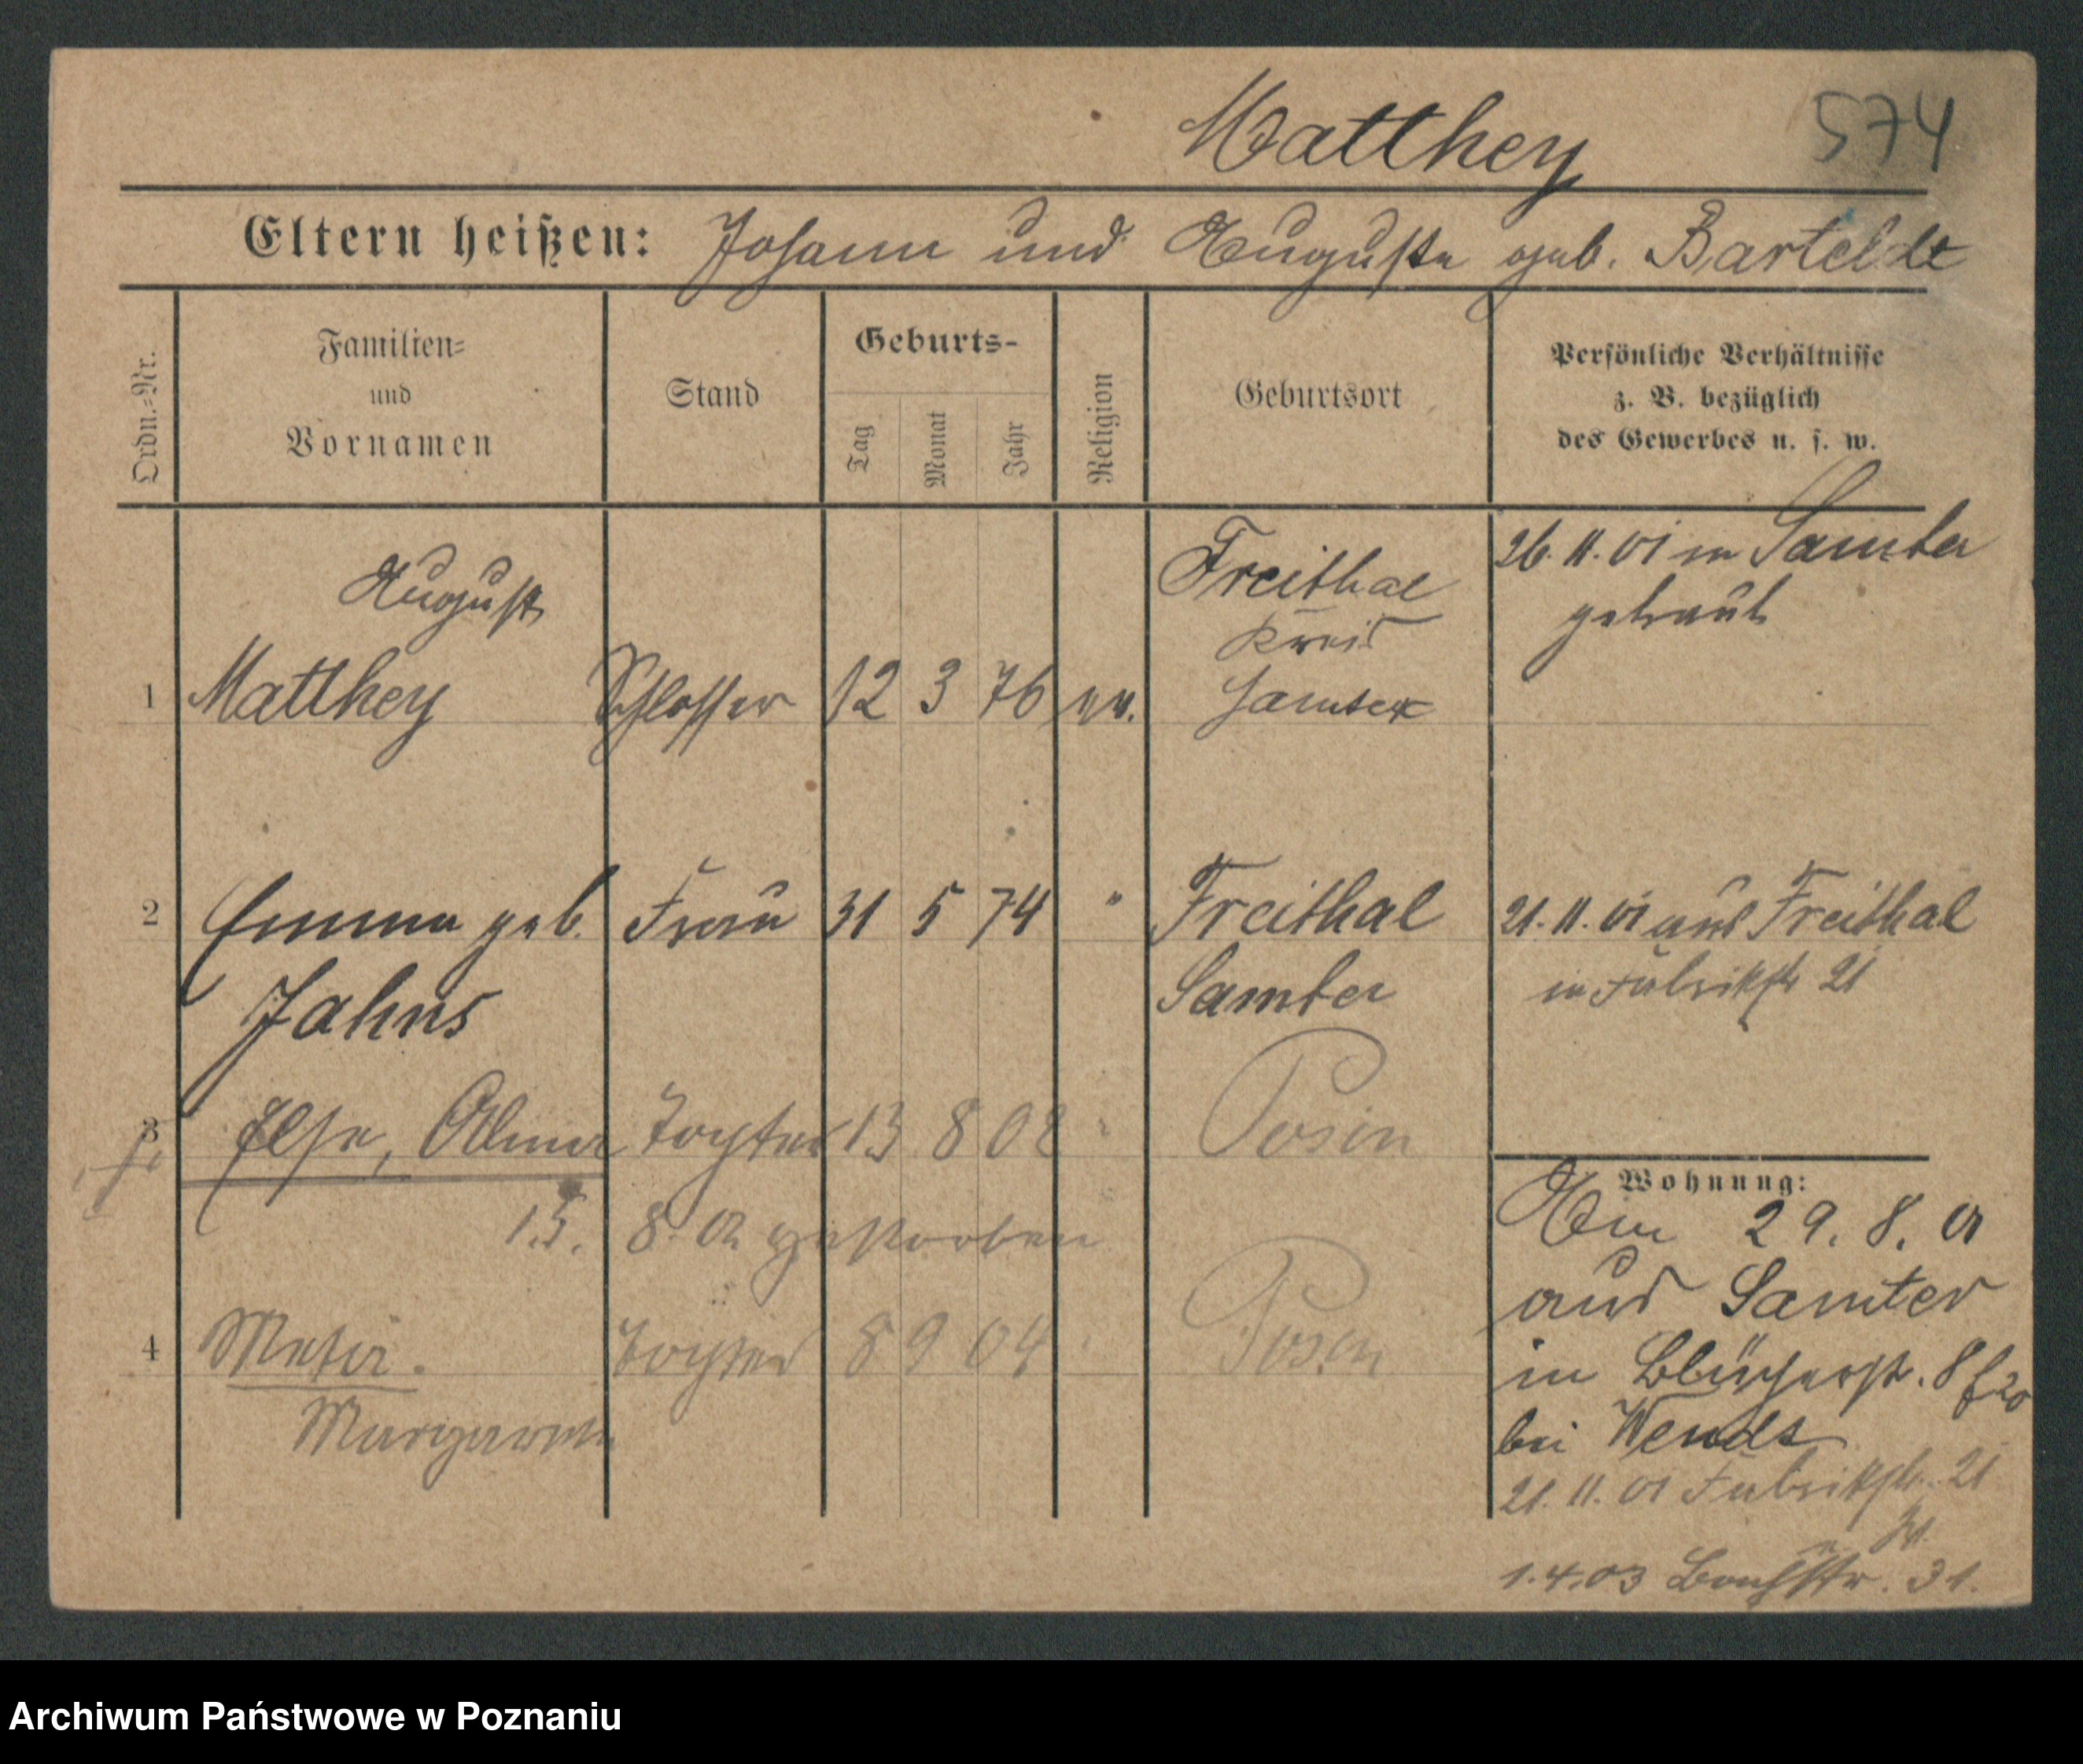 Matthey 574
Eltern heißen: Johann und Auguste geb. Barteldt
Ordn.=Nr.
Familien=
und
Vornamen
Stand
Geburts-
Tag
Monat
Jahr
Religion
Geburtsort
Persönliche Verhältnisse
z. B. bezüglich
des Gewerbes u. s. w.
August
1 Matthey Schlosser 12 3 76 ev.
Freithal
Kreis
Samter
26. 11. 01 in Samter
getraut
2 Emma geb. Frau 31 5 74 " Freithal
Jahns Samter
21. 11. 01 aus Freithal
in Fabrikstr 21
3 Else, Tochter 13 8 02 Posen
15. 8. 02 gestorben
4 Meta. Tochter 8 9 04 Posen
Margarete
Wohnung:
Am 29. 8. 01
aus Samter
in Blücherstr. 8
bei Wendt
21. 11. 01 Fabrikstr. 21
1.4.03 31.
Archiwum Państwowe w Poznaniu